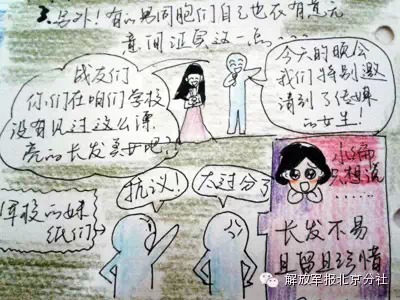 3.另外！有的男同胞们自己也在有意无
意间证实这一点……
战友们
你们在咱们学校
没有见过这么漂
亮的长发美女吧？
今天的晚会
我们特别邀
请到了传媒
的女生！
军校的妹
纸们
抗议！
太过分了
小编
只想说
……
长发不易
且留且珍惜
解放军报北京分社